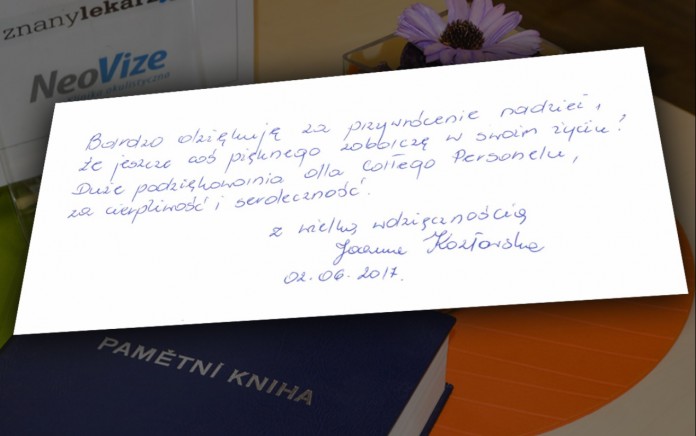 znanylekarz
NeoVize
okulistyczna
Bardzo dziękuję za przywrócenie nadziei,
że jeszcze coś pięknego zobaczę w swoim życiu!
Duże podziękowania dla całego Personelu,
za cierpliwość i serdeczność.
z wielką wdzięcznością
Joanna Kozłowska
02.06.2017.
PAMĚTNÍ KNIHA